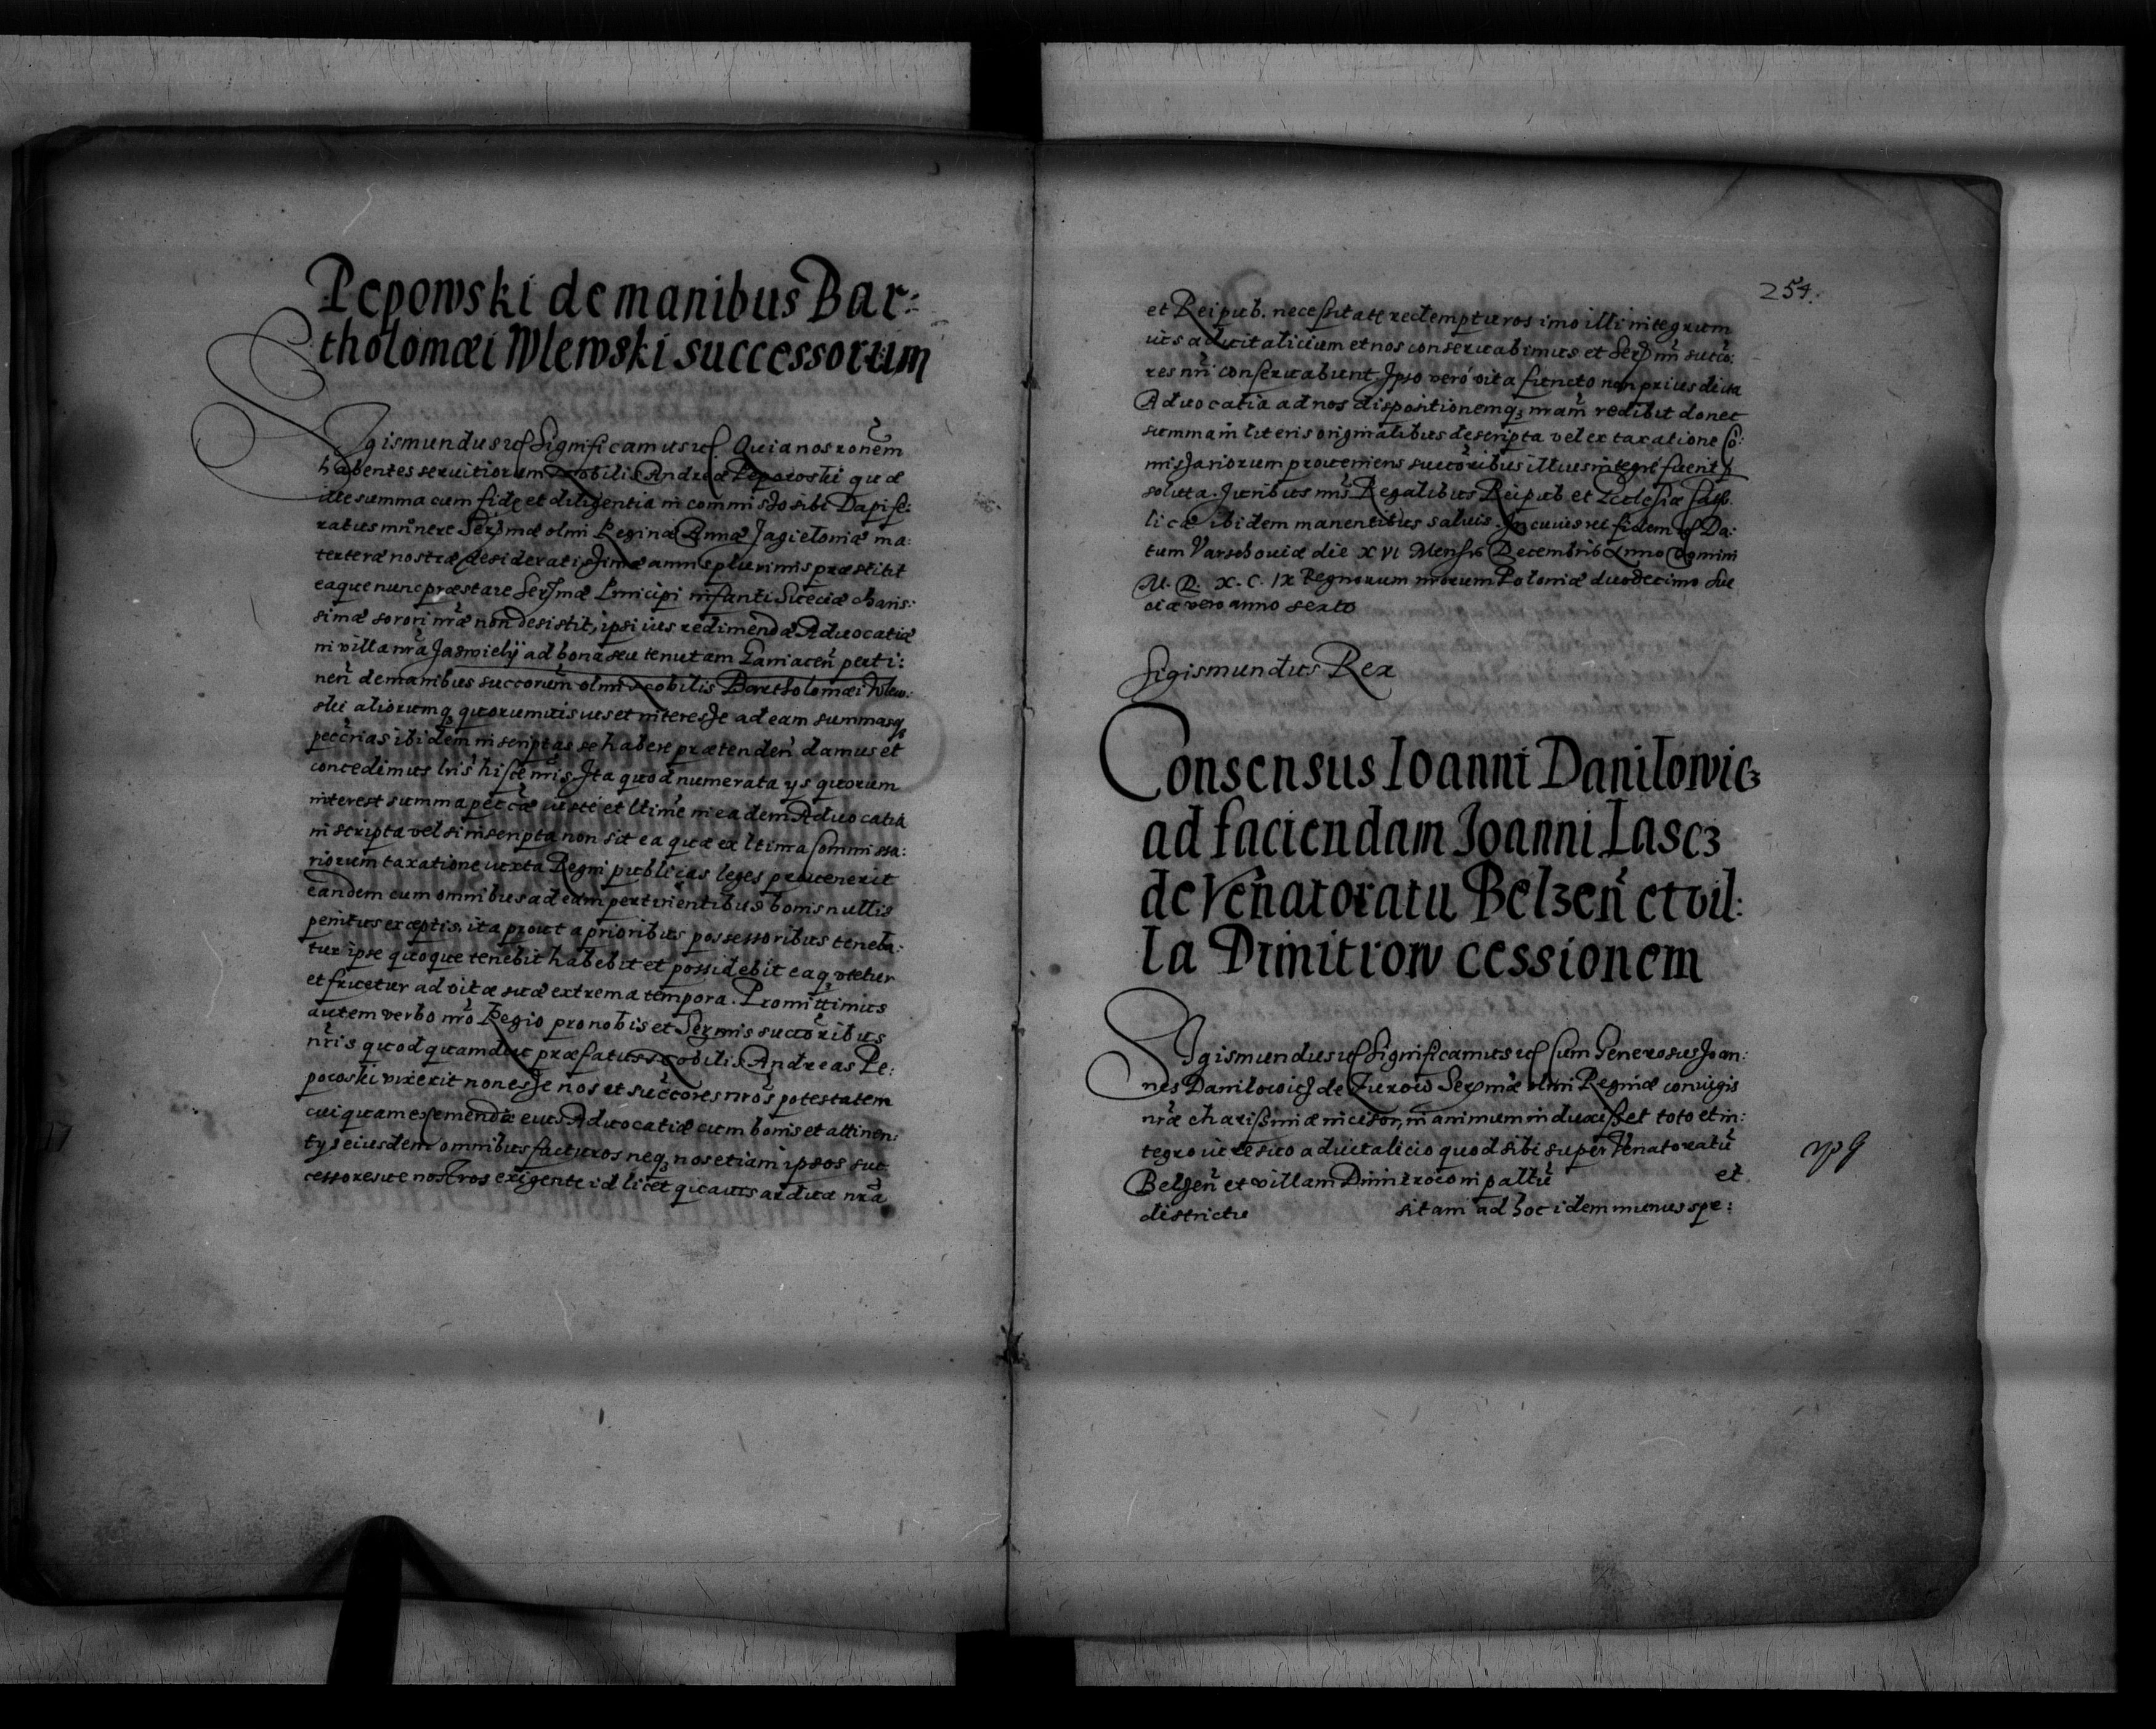 Pepowski de manibus Bar:
tholomæi Wlewski successorum
Sigismundus etc Significamus etc. Quia nos ronem
habentes seruitiorum Nobilis Andreæ Peporoski quæ
ille summa cum fide et diligentia in commisso sibi Dapife:
ratus munere Sersmæ olim Reginæ Annæ Jagieloniæ ma:
terteræ nostræ desideratissimæ annis plurimis præstitit
eaque nunc præstare Sersmæ Principi infanti Sueciæ charis:
simæ sorori nræ non desistit, ipsi ius redimendæ Aduocatiæ
in villa nra Jaswiely ad bona seu tenutam Janiacen perti:
nen de manibus succorum olim Nobilis Bartholomæi Wlew:
ski aliorumq quorumuis ius et interesse ad eam summasq
peccrias ibidem inscriptas se habere prætenden damus et
concedimus lris hisce nris. Ita quod numerata ys quorum
interest summa peccæ iuste et ltime in eadem Aduocatia
inscripta vel si inscripta non sit ea quæ ex ltima Commissa:
riorum taxatione iuxta Regni publicas leges prouenerit
eandem cum omnibus ad eam pertinentibus bonis nullis
penitus exceptis, ita prout a prioribus possessoribus teneba:
tur ipse quoque tenebit habebit et possidebit eaq vtetur
et fruetur ad vitæ suæ extrema tempora. Promittimus
autem verbo nro Regio pro nobis et Sermis succoribus
nris quod quamdiu præfatus Nobilis Andreas Pe:
poroski vixerit non esse nos et succores nros potestatem
cuiquam eximendæ eius Aduocatiæ cum bonis et attinen:
tys eiusdem omnibus facturos neq nos etiam ipsos suc
cessoresue nostros exigente id licet quauis ardua nra
254.
et Reipub. necessitate redempturos imo illi integrum
ius aduitalicium et nos conseruabimus et Sermi succo:
res nri conseruabunt Ipso vero vita functo non prius dicta
Aduocatia ad nos dispositionemq nram redibit donec
summam literis originalibus descripta vel ex taxatione Co:
missariorum proueniens succoribus illius integre fuerit p
soluta. Juribus nris Regalibus Reipub et Ecclesiæ Catho
licæ ibidem manentibus saluis. In cuius rei fidem etc Da:
tum Varschouiæ die XVI Mensis Decembris Anno Domini
M. D. X. C. IX Regnorum nrorum Poloniæ duodecimo Sue
ciæ vero anno sexto
Sigismundus Rex
Consensus Ioanni Danilowicz
ad faciendam Joanni Lascz
de Venatoratu Belzen et vil:
la Dimitrow cessionem
Sigismundus etc Significamus etc Cum Generosus Joan:
nes Danilowicz de Zurow Sersmæ olim Reginæ coniugis
nræ charissimæ incisor, in animum induxisset toto et in:
tegro iure suo aduitalicio quod sibi super Venatoratu
Belzen et villam Dimitrow in pallu et
districtu sitam ad hoc idem munus spe: